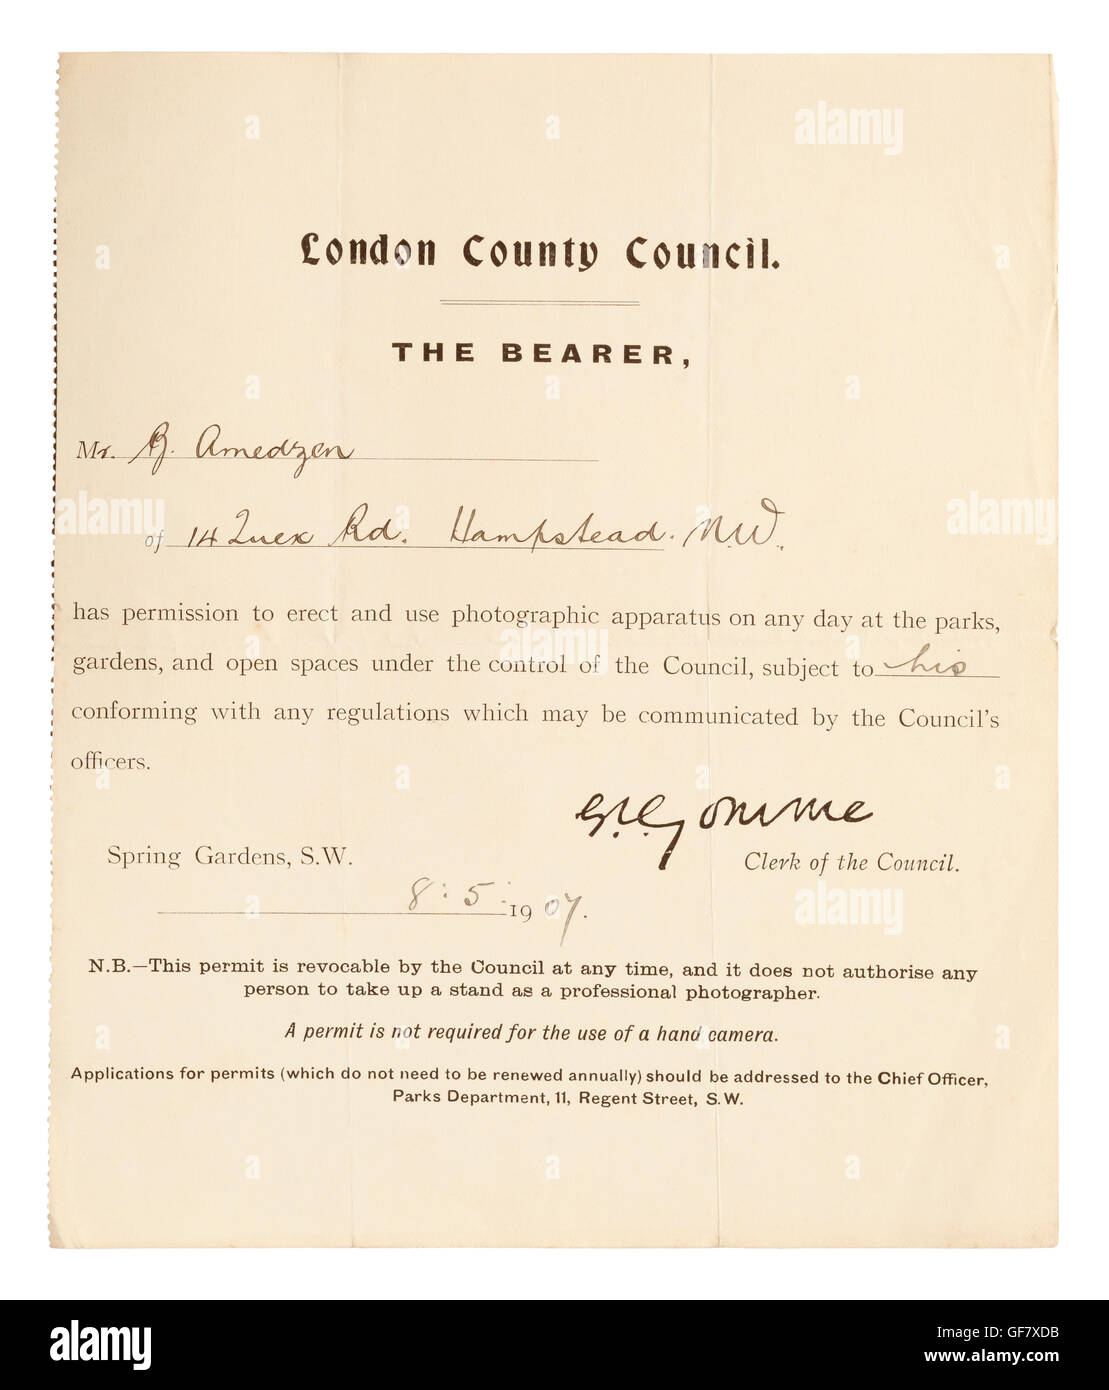 London County Council.
THE BEARER,
Mr. Amedzen
of 14 Quex Rd. Hampstead. N.W.
has permission to erect and use photographic apparatus on any day at the parks,
gardens, and open spaces under the control of the Council, subject to his
conforming with any regulations which may be communicated by the Council's
officers.
G.L. Gomme
Spring Gardens, S.W.
Clerk of the Council.
8:5: 1907.
N.B.—This permit is revocable by the Council at any time, and it does not authorise any
person to take up a stand as a professional photographer.
A permit is not required for the use of a hand camera.
Applications for permits (which do not need to be renewed annually) should be addressed to the Chief Officer,
Parks Department, 11, Regent Street, S.W.
alamy
Image ID: GF7XDB
www.alamy.com